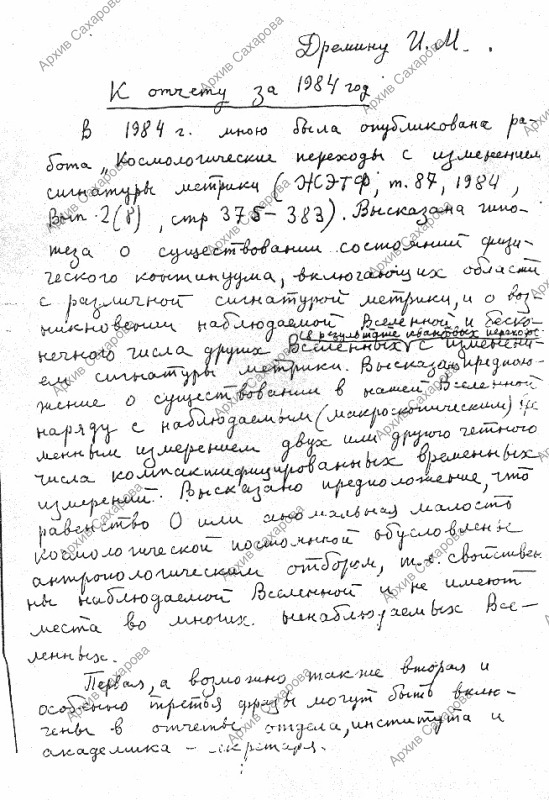 Дремину И.М.
К отчету за 1984 год
В 1984 г. мною была опубликована ра-
бота „Космологические переходы с изменением
сигнатуры метрики (ЖЭТФ, т. 87, 1984,
Вып. 2(8), стр 375-383). Высказана гипо-
теза о существовании состояний физи-
ческого континуума, включающих области
с различной сигнатурой метрики, и о воз-
никновении наблюдаемой Вселенной и беско-
нечного числа других Вселенных (в результате квантовых переходов) с изменени-
ем сигнатуры метрики. Высказано предполо-
жение о существовании в нашей Вселенной
наряду с наблюдаемым (макроскопическим) вре-
менным измерением двух или другого четного
числа компактифицированных временных
измерений. Высказано предположение, что
равенство 0 или аномальная малость
космологической постоянной обусловлены
антропологическим отбором, т.е. свойствен-
ны наблюдаемой Вселенной и не имеют
места во многих ненаблюдаемых Все-
ленных.
Первая, а возможно также вторая и
особенно третья фразы могут быть вклю-
чены в отчеты отдела, института и
академика - секретаря.
Архив Сахарова